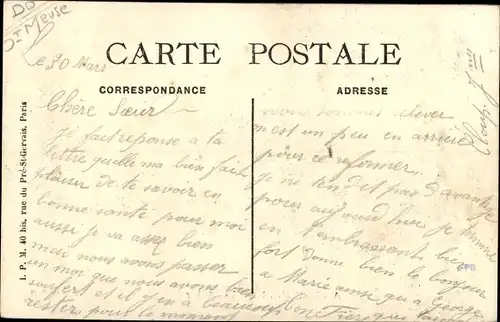 Dt Meuse
CARTE POSTALE
CORRESPONDANCE
ADRESSE
I. P. M. 40 bis, rue du Pré-St-Gervais, Paris
Le 20 Mars
Chère Sœur
Je fait reponse a ta
lettre quelle ma bien fait
plaisir de te savoir en
bonne santé pour moi
aussi je va assez bien
mai nous avons passer
un moi que nous avons bien
souffert et il y en a
rester pour le moment
nous
n'est un peu en arriere
pour ce reformer
Je ne ten dit pas d'avantage
pour aujourd'hui je termine
en t'embrassant bien
fort donne bien le bonjour
a Marie ainsi qu a George
ton Frère qui